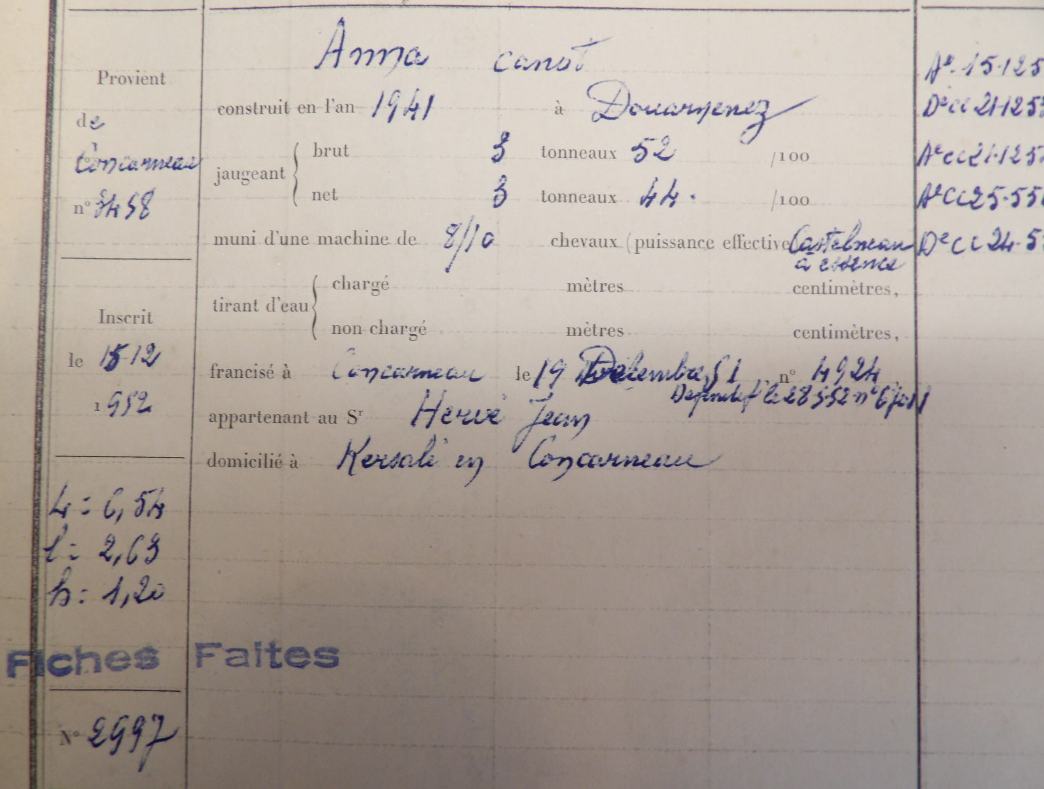 Provient
de
Concarneau
n° 3458
Inscrit
le 15-12
1952
L = 6,54
l = 2,63
h = 1,20
Fiches Faites
N° 2997
Anna canot
construit en l'an 1941 à Douarnenez
jaugeant brut 3 tonneaux 52 /100
net 3 tonneaux 44 . /100
muni d'une machine de 8/10 chevaux (puissance effective Castelneau
à essence
tirant d'eau chargé mètres centimètres,
non chargé mètres centimètres,
francisé à Concarneau le 19 Décembre 51 n° 4924
Définitif le 28 5 52 n°
appartenant au Sr Hervé Jean
domicilié à Kersalé en Concarneau
Ae 15-125
De cc 21-125
Ae cc 21-125
Ae CC 25-55
De cc 24-5